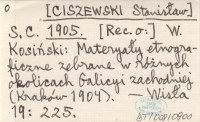 o [CISZEWSKI Stanisław]
S.C. 1905. [Rec. o:] W.
Kosiński: Materyały etnogra-
ficzne zebrane w różnych
okolicach Galicyi zachodniej
(Kraków 1904). — Wisła
19: 225.